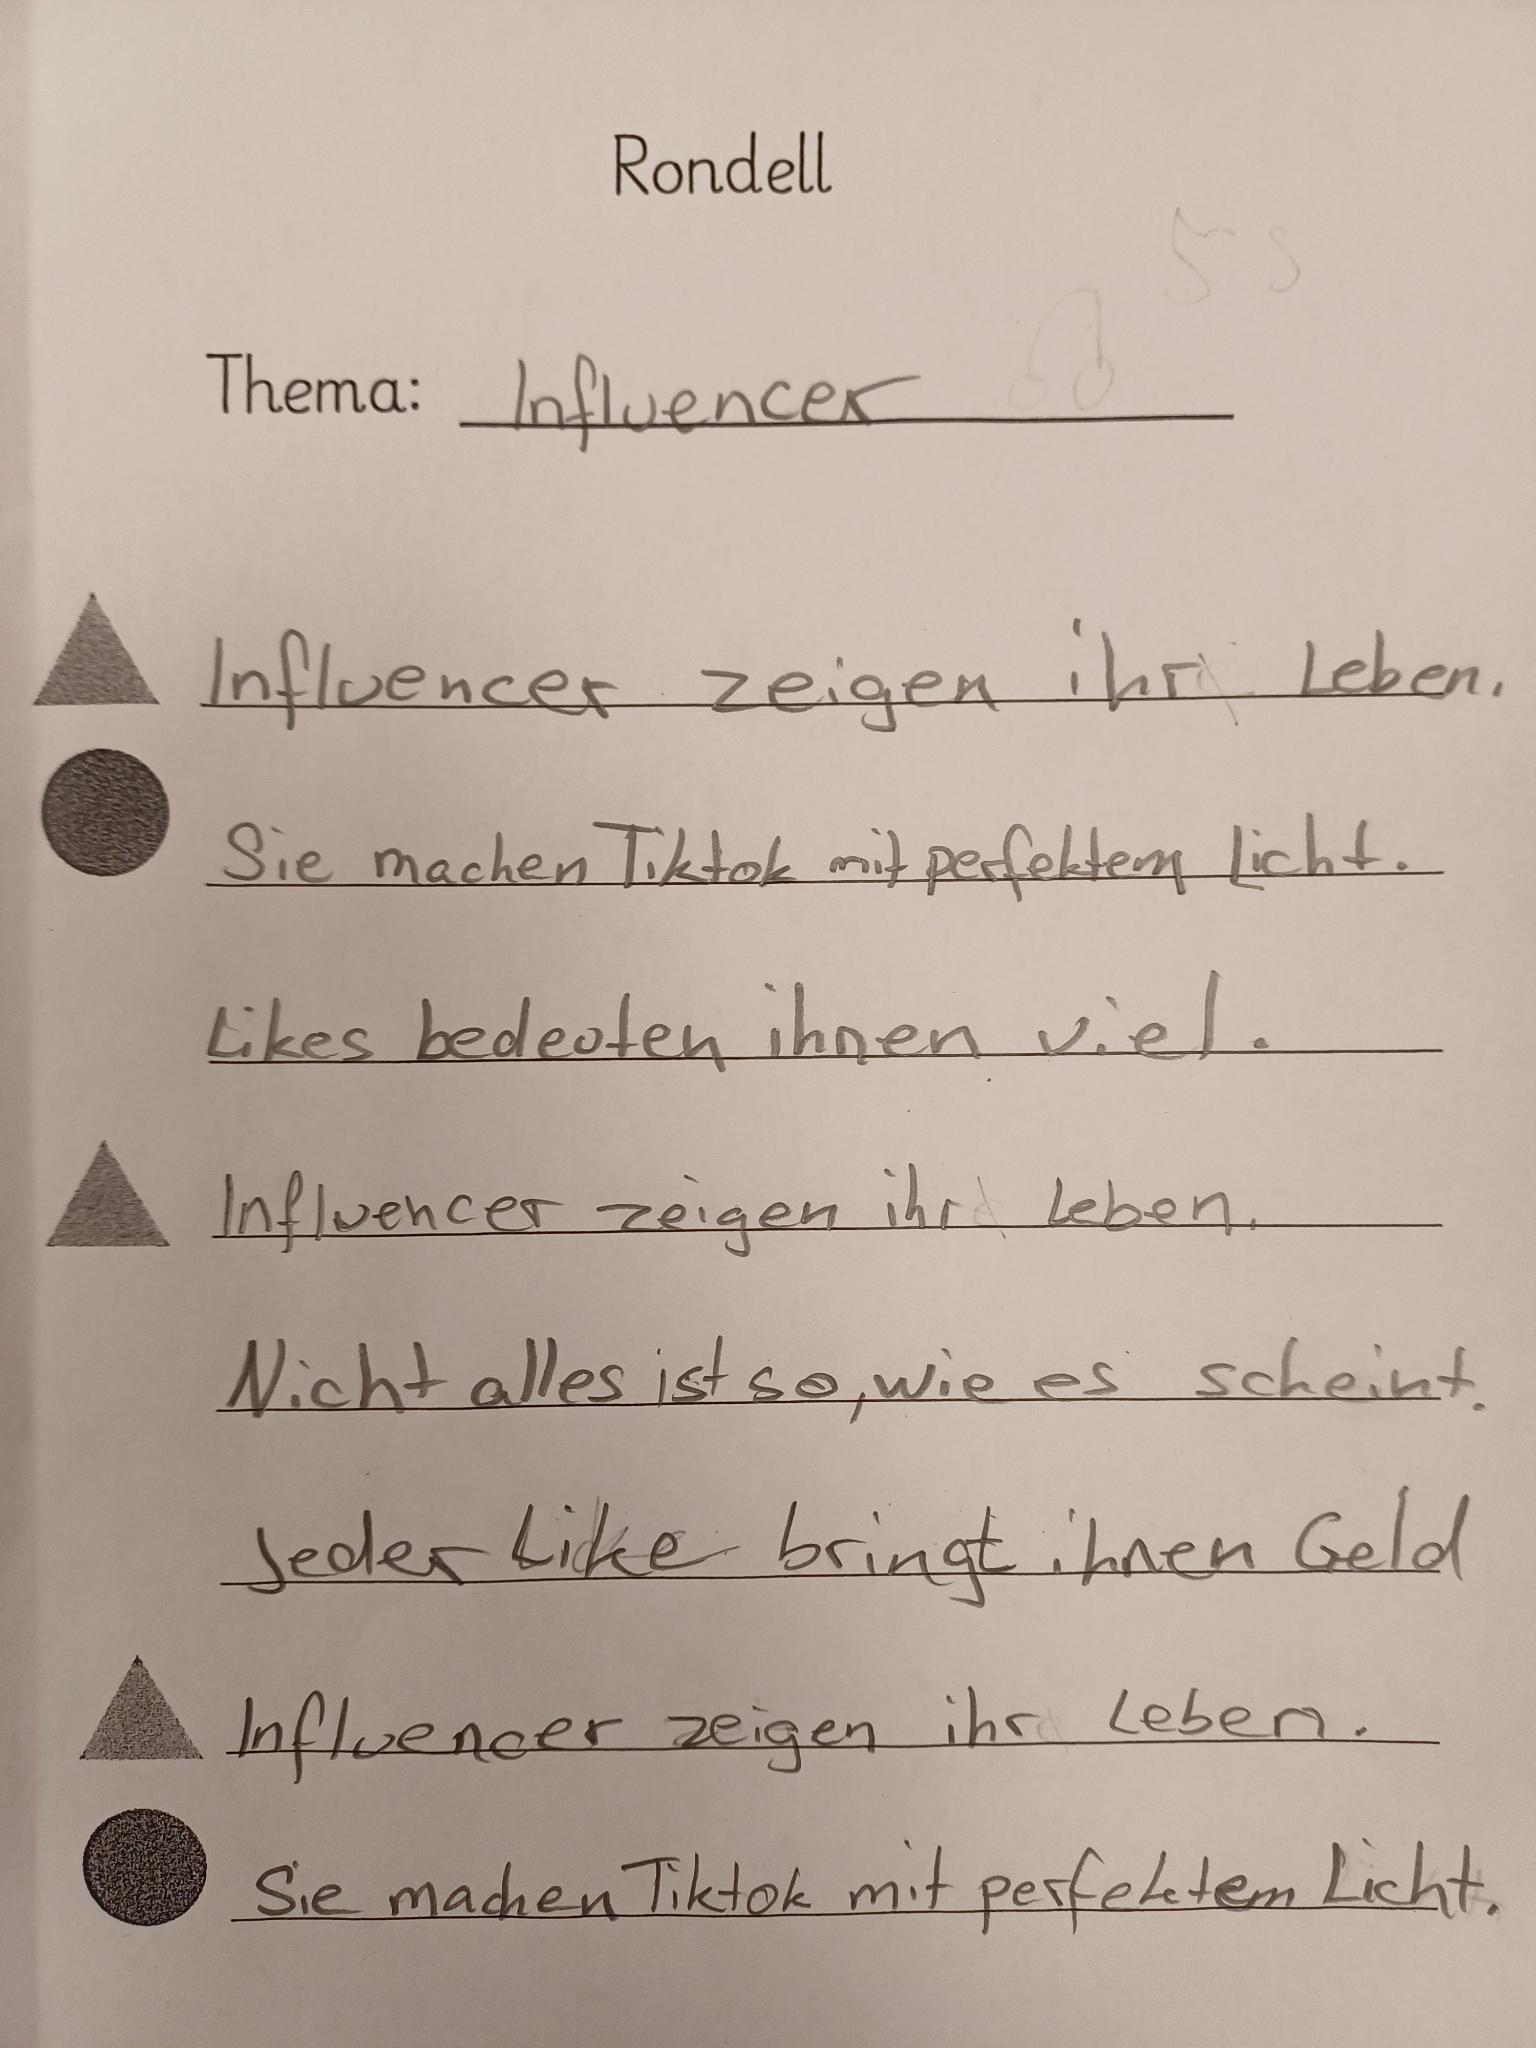 Rondell
Thema: Influencer
Influencer zeigen ihr Leben.
Sie machen Tiktok mit perfektem Licht.
Likes bedeuten ihnen viel.
Influencer zeigen ihr Leben.
Nicht alles ist so, wie es scheint.
Jeder Like bringt ihnen Geld
Influencer zeigen ihr Leben.
Sie machen Tiktok mit perfektem Licht.